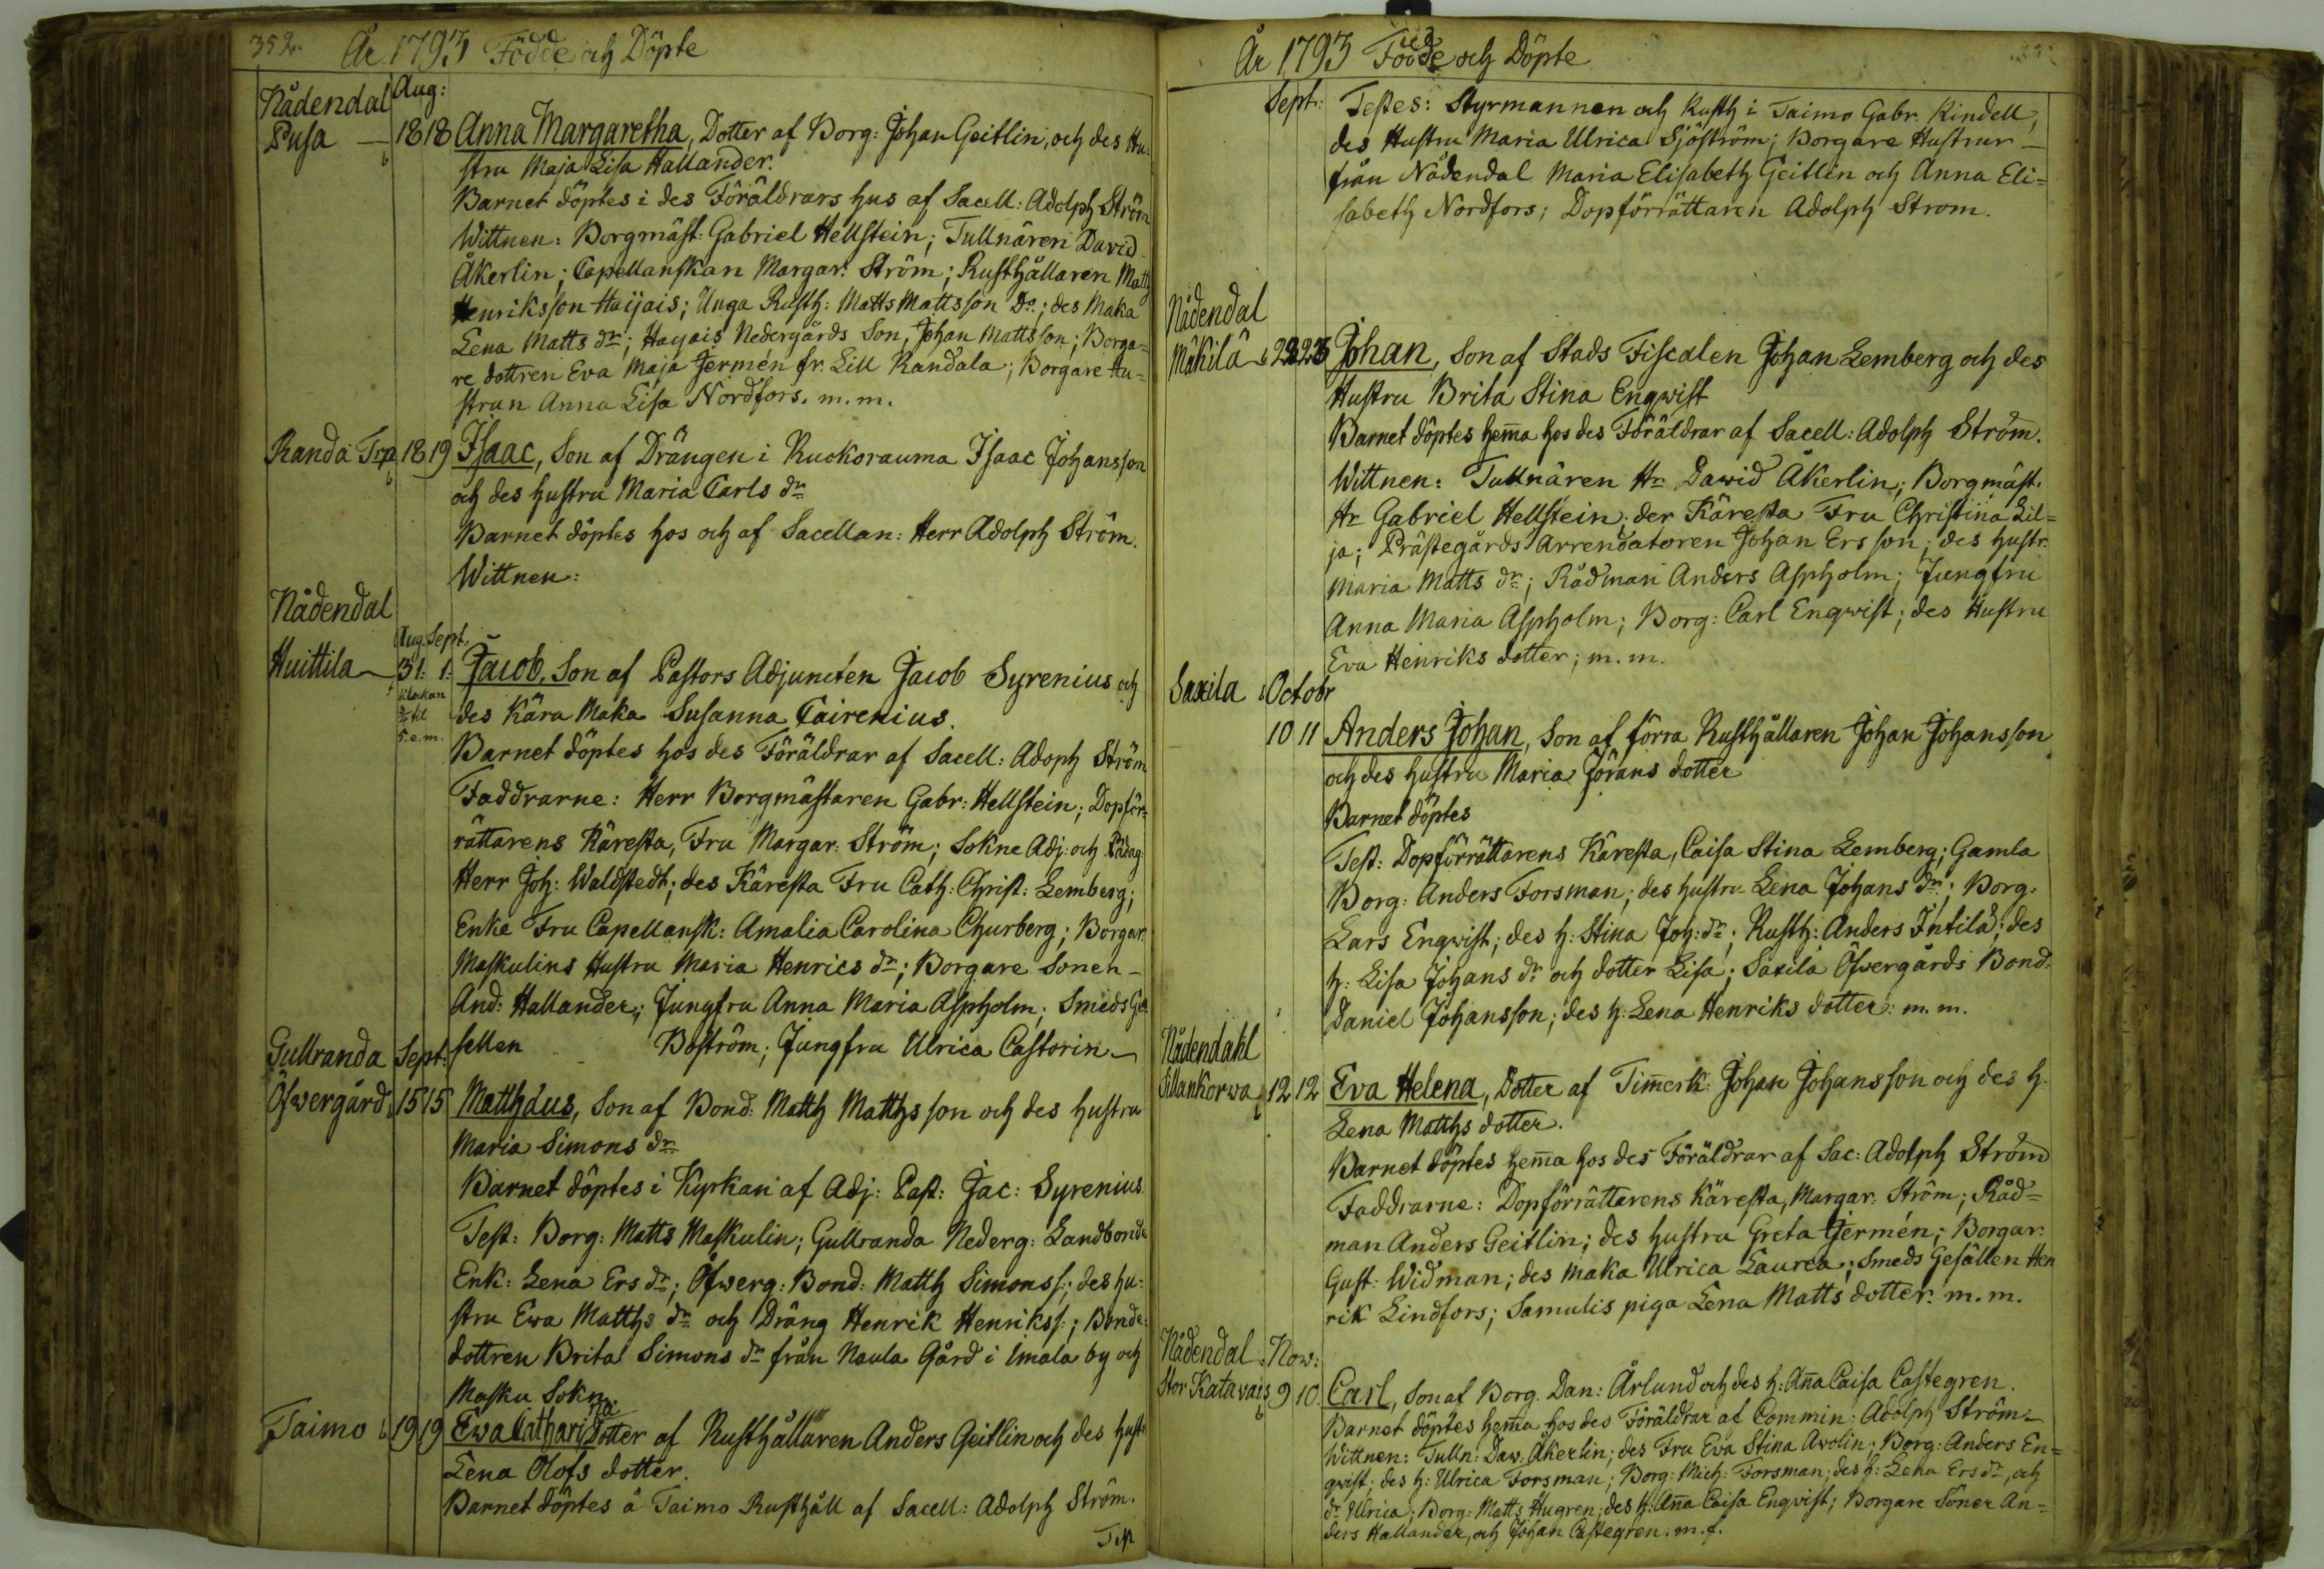 352.
År 1793 Födde och Döpte
Nådendal Aug:
Pusa — 18 18 Anna Margaretha, Dotter af Borg: Johan Geitlin, och des Hu-
stru Maja Lisa Hallander.
Barnet döptes i des Föräldrars hus af Sacell: Adolph Ström
Wittnen: Borgmäst: Gabriel Hellstein; Tullnären David
Åkerlin; Capellanskan Margar: Ström; Rusthållaren Matth
Henriksson Haijais; Unga Rusth: Matts Mattsson Do; des Maka
Lena Matts dr; Hayais Nedergårds Son, Johan Mattsson; Borga=
re dottren Eva Maja Jermén fr. Lill Randala; Borgare Hu=
strun Anna Lisa Nordfors. m.m.
Randa Trp 18 19 Isaac, Son af Drängen i Ruokorauma Isaac Johansson
och des hustru Maria Carls dr
Barnet döptes hos och af Sacellan: Herr Adolph Ström.
Wittnen:
Nådendal
Aug. Sept.
Huittila 31: 1: Jacob, Son af Pastors Adjuncten Jacob Syrenius och
Klockan
des Kära Maka Susanna Cairenius.
5. e.m.
Barnet döptes hos des Föräldrar af Sacell: Adoph Ström
Faddrarne: Herr Borgmästaren Gabr: Hellstein; Dopför=
rättarens Käresta, Fru Margar: Ström; Sokne Adj: och Pädag:
Herr Joh: Waldstedt; des Käresta Fru Cath: Christ: Lemberg;
Enke Fru Capellansk: Amalia Carolina Churberg; Borgar:
Maskulins Hustru Maria Henrics dr; Borgare Sonen —
And: Hallander; Jungfru Anna Maria Aspholm; Smeds Ge
sellen Boström; Jungfru Ulrica Castorin —
Gullranda Sept:
Öfwergård 15 15 Matthäus, Son af Bond: Matth Matthsson och des hustru
Maria Simons dr
Barnet döptes i Kyrkan af Adj: Past: Jac: Syrenius.
Test: Borg: Matts Maskulin; Gullranda Nederg: Landbonde
Enk: Lena Ers dr; Öfwerg: Bond: Matth Simonss; des hu=
stru Ewa Matths dr och Dräng Henrik Henrikss; Bonde
dottren Brita Simons dr från Naula Gård i Imala by och
Masku Sokn
Taimo 19 19 Ewa Catharina Dotter af Rusthållaren Anders Geitlin och des hust:
Lena Olofs dotter.
Barnet döptes å Taimo Rusthåll af Sacell: Adolph Ström.
Test
År 1793 Födde och Döpte
Sept: Testes: Styrmannen och Rusth i Taimo Gabr. Kindell,
des Hustru Maria Ulrica Sjöström; Borgare Hustrur —
från Nådendal Maria Elisabeth Geitlin och Anna Eli=
sabeth Nordfors; Dopförrättaren Adolph Strom.
Nådendal
Mäkilä 22 23 Johan, Son af Stads Fiscalen Johan Lemberg och des
Hustru Brita Stina Engwist
Barnet döptes hema hos des Föräldrar af Sacell: Adolph Ström.
Wittnen: Tullnären Hr Dawid Åkerlin; Borgmäst.
Hr Gabriel Hellstein; der Käresta Fru Christina Lil=
ja; Prästegårds Arrendatoren Johan Ersson; des hustr:
Maria Matts dr; Rådman Anders Aspholm; Jungfru
Anna Maria Aspholm; Borg: Carl Engwist; des Hustru
Eva Henriks dotter; m.m.
Saxila Octobr
10 11 Anders Johan, Son af förra Rusthållaren Johan Johansson
och des hustru Maria Jörans dotter
Barnet döptes
Test: Dopförrättarens Käresta, Caisa Stina Lemberg; Gamla
Borg: Anders Forsman; des hustru Lena Johans dr; Borg.
Lars Engwist; des h: Stina Joh: dr; Rusth: Anders Intilä; des
h: Lisa Johans dr och dotter Lisa; Saxila Öfwergårds Bond:
Daniel Johansson; des h: Lena Henriks dotter: m.m.
Nådendahl
Sillankorwa 12 12 Eva Helena, Dotter af Timerk: Johan Johansson och des h.
Lena Matths dotter.
Barnet döptes hema hos des Föräldrar af Sac: Adolph Ström
Faddrarne: Dopförrättarens Käresta, Margar: Ström; Råd=
man Anders Geitlin; des hustru Greta Germén; Borgar:
Gust: Widman; des maka Ulrica Laurea; Smeds Gesällen Hen
rik Lindfors; Samulis piga Lena Matts dotter: m.m.
Nådendal Now:
Stor Katavais 9 10. Carl, Son af Borg. Dan: Ärlund och des h: Ana Caisa Castegren.
Barnet döptes hema hos des Föräldrar af Commin: Adolph Ström —
Wittnen: Tulln: Daw: Åkerlin; des Fru Eva Stina Avolin; Borg: Anders En=
gwist; des h: Ulrica Forsman; Borg: Mich: Forsman; des h: Lena Ers dr, och
dr Ulrica; Borg: Matts Hugren; des h: Ana Caisa Engvist; Borgare Söner An=
ders Hallander, och Johan Castegren. m.f.